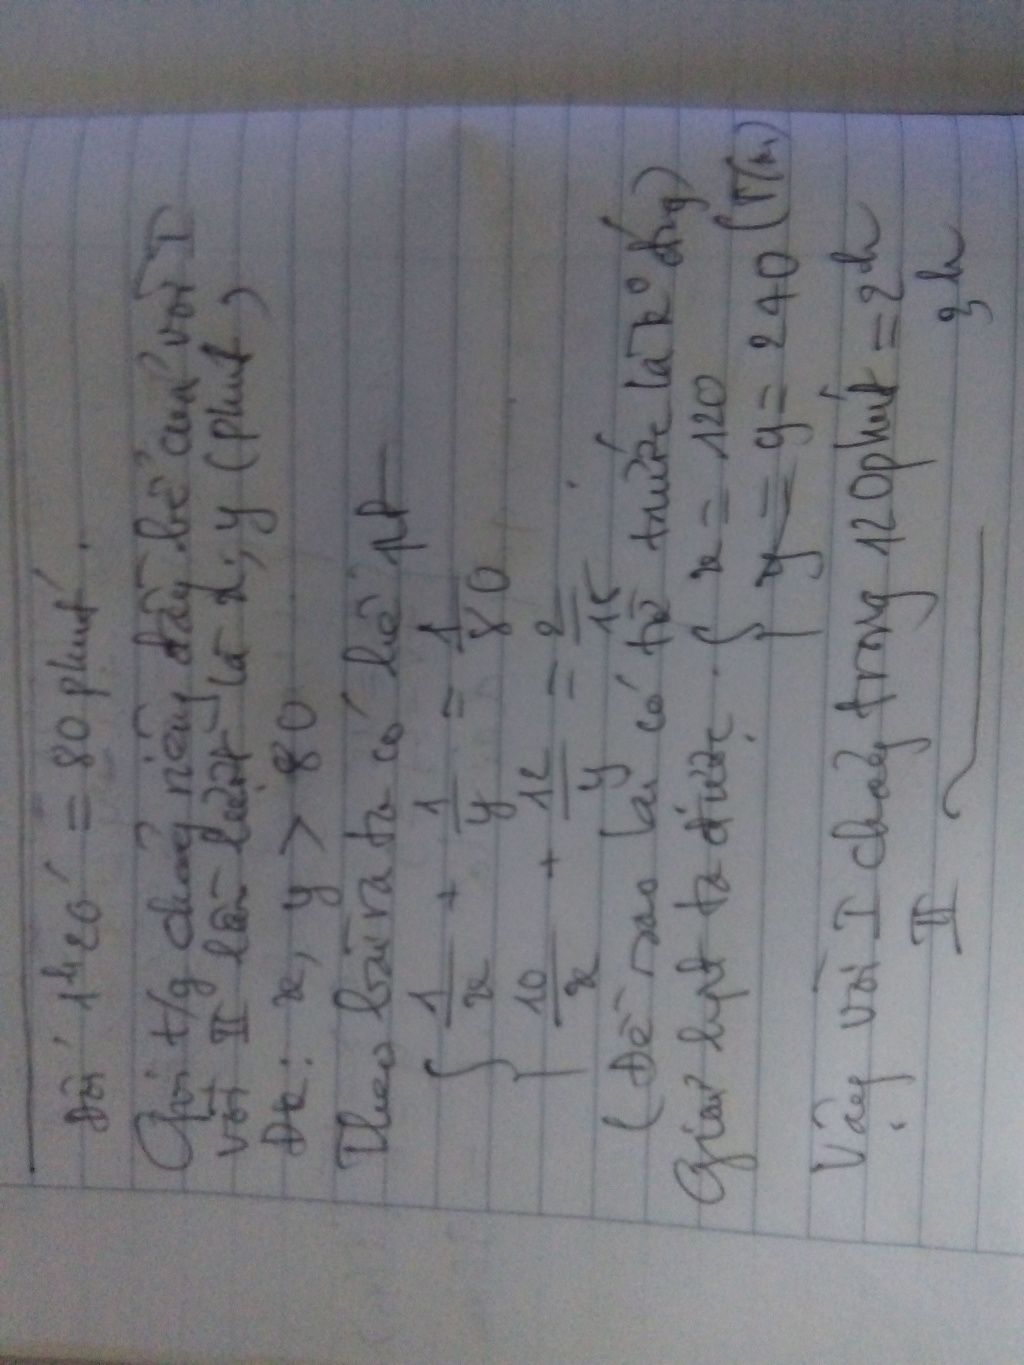 Đổi 1h20' = 80 phút.
Gọi t/g chảy riêng đầy bể của vòi I
vòi II lần lượt là x, y (phút)
Đk: x, y > 80
Theo bài ra ta có hệ pt
{ 1/x + 1/y = 1/80
{ 10/x + 12/y = 2/15
(Dê sao lại có từ trước là k° đúng)
Giải hpt ta được { x = 120
{ y = 240 (T/m)
Vậy vòi I chảy trong 120 phút = 2h
II